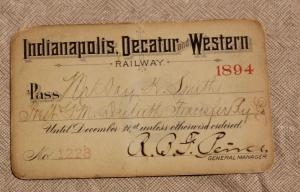 Indianapolis, Decatur and Western
RAILWAY
1894
Pass Smith
Transfer Ry
Until December 31st unless otherwise ordered.
No 1223
GENERAL MANAGER